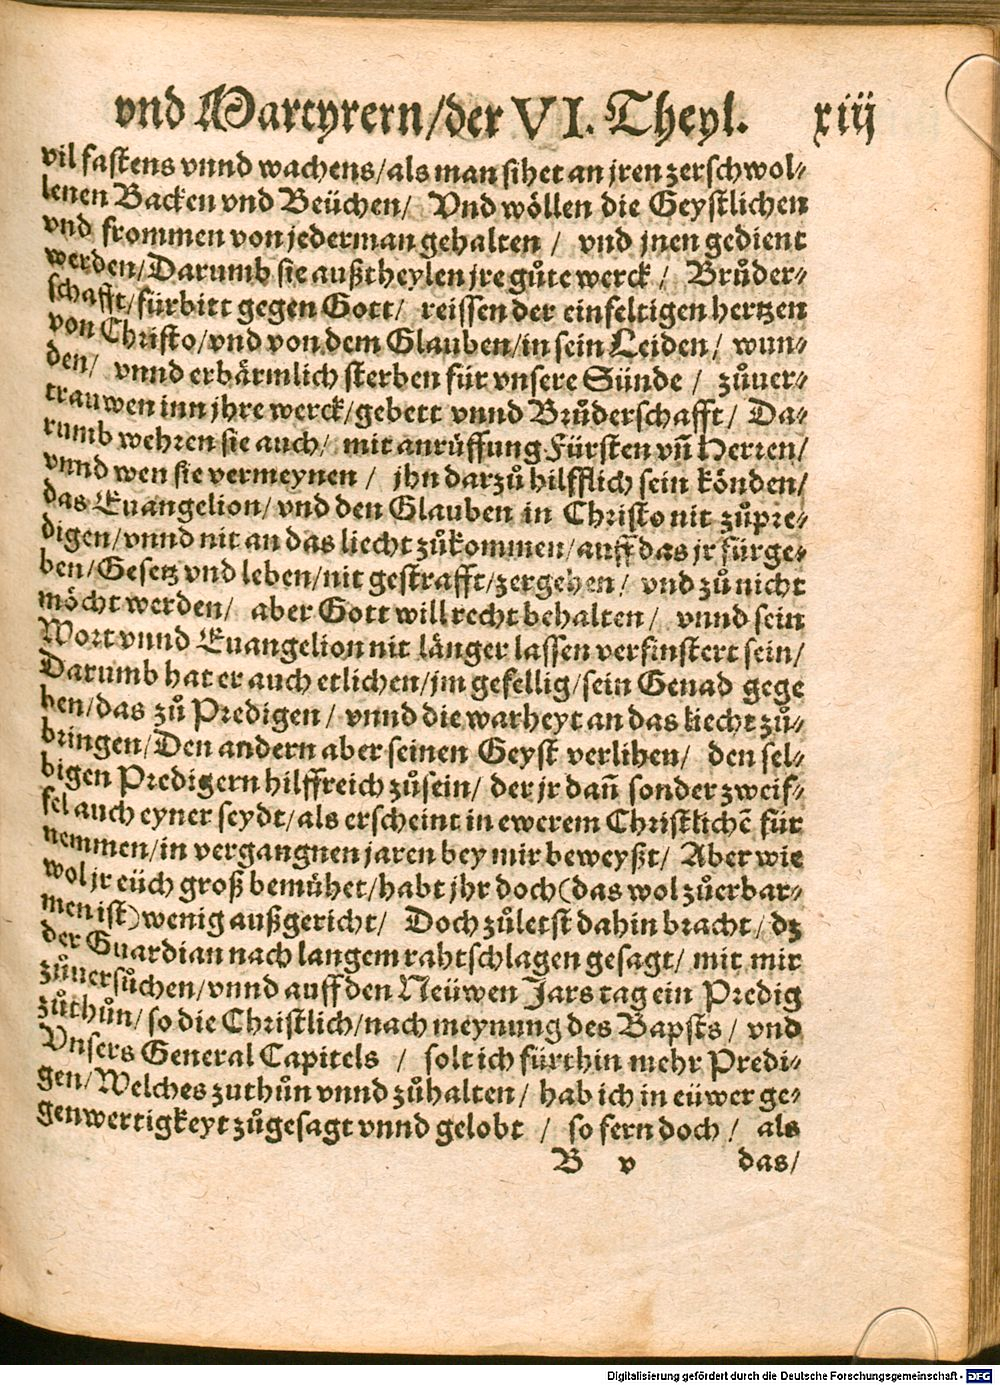 vnd Martyrern/der VI. Theyl. xiij
vil fastens vnnd wachens/als man sihet an jren zerschwol-
lenen Backen vnd Beüchen/ Vnd wöllen die Geystlichen
vnd frommen von jederman gehalten / vnd jnen gedient
werden/Darumb sie außtheylen jre gůte werck / Brůder-
schafft/fürbitt gegen Gott/ reissen der einfeltigen hertzen
von Christo/vnd von dem Glauben/in sein Leiden/ wun-
den/ vnnd erbärmlich sterben für vnsere Sünde / zůuer-
trauwen inn jhre werck/gebett vnnd Brůderschafft/ Da-
rumb wehren sie auch/ mit anrüffung Fürsten vñ Herren/
vnnd wen sie vermeynen / jhn darzů hilfflich sein könden/
das Euangelion/ vnd den Glauben in Christo nit zůpre-
digen/vnnd nit an das liecht zůkommen/auff das jr fürge-
ben/Gesetz vnd leben/nit gestrafft/zergehen/ vnd zů nicht
möcht werden/ aber Gott will recht behalten/ vnnd sein
Wort vnnd Euangelion nit länger lassen verfinstert sein/
Darumb hat er auch etlichen/jm gefellig/sein Genad gege
ben/das zů Predigen / vnnd die warheyt an das liecht zů-
bringen/Den andern aber seinen Geyst verlihen/ den sel-
bigen Predigern hilffreich zůsein/ der jr dañ sonder zweif-
fel auch eyner seydt/als erscheint in ewerem Christlichē für
nemmen/in vergangnen jaren bey mir beweyßt/ Aber wie
wol jr eüch groß bemühet/habt jhr doch (das wol zůerbar-
men ist) wenig außgericht/ Doch zůletst dahin bracht/ dz
der Guardian nach langem rahtschlagen gesagt/ mit mir
zůuersůchen/vnnd auff den Neüwen Jars tag ein Predig
zůthůn/ so die Christlich/nach meynung des Bapsts / vnd
Vnsers General Capitels / solt ich fürthin mehr Predi-
gen/Welches zuthůn vnnd zůhalten/ hab ich in eüwer ge-
genwertigkeyt zůgesagt vnnd gelobt / so fern doch / als
B v das/
Digitalisierung gefördert durch die Deutsche Forschungsgemeinschaft - DFG